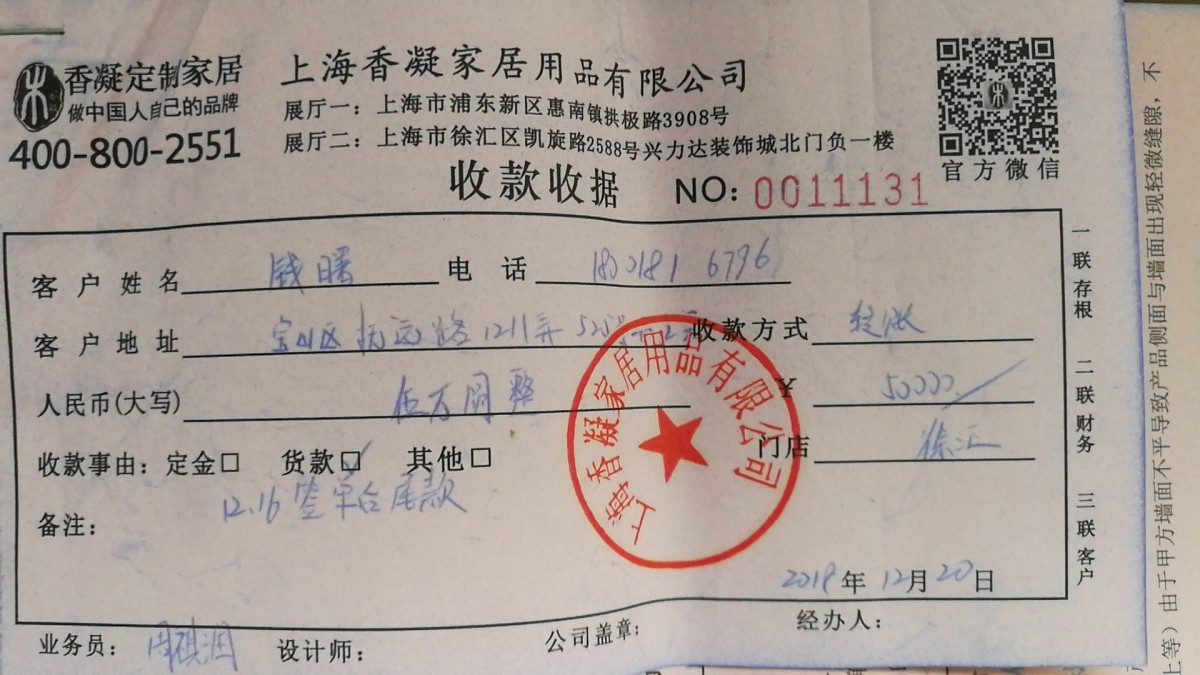 香凝定制家居
做中国人自己的品牌
400-800-2551
上海香凝家居用品有限公司
展厅一：上海市浦东新区惠南镇拱极路3908号
展厅二：上海市徐汇区凯旋路2588号兴力达装饰城北门负一楼
官方微信
收款收据 NO：0011131
客户姓名 钱曙 电话
客户地址 宝山区 路1211弄 收款方式
人民币(大写) 伍万圆整 ¥ 50000
收款事由：定金□ 货款☑ 其他□ 门店 徐汇
备注：12.16签单台尾款
上海香凝家居用品有限公司
2019年12月20日
业务员： 设计师： 公司盖章： 经办人：
一联存根 二联财务 三联客户
上等）由于甲方墙面不平导致产品侧面与墙面出现轻微缝隙，不